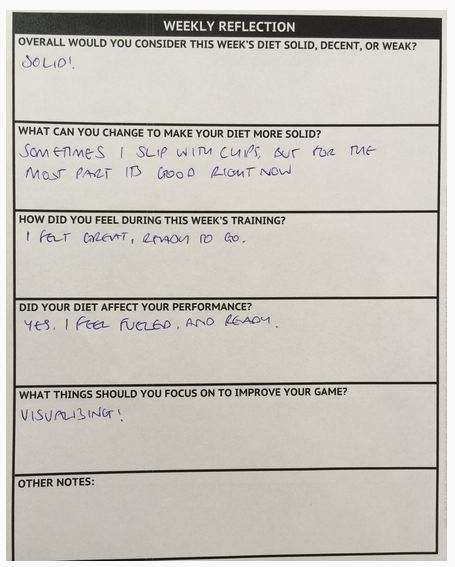 WEEKLY REFLECTION
OVERALL WOULD YOU CONSIDER THIS WEEK'S DIET SOLID, DECENT, OR WEAK?
SOLID!
WHAT CAN YOU CHANGE TO MAKE YOUR DIET MORE SOLID?
SOMETIMES I SLIP WITH CHIPS, BUT FOR THE
MOST PART ITS GOOD RIGHT NOW
HOW DID YOU FEEL DURING THIS WEEK'S TRAINING?
I FELT GREAT, READY TO GO.
DID YOUR DIET AFFECT YOUR PERFORMANCE?
YES. I FEEL FUELED, AND READY.
WHAT THINGS SHOULD YOU FOCUS ON TO IMPROVE YOUR GAME?
VISUALIZING!
OTHER NOTES: